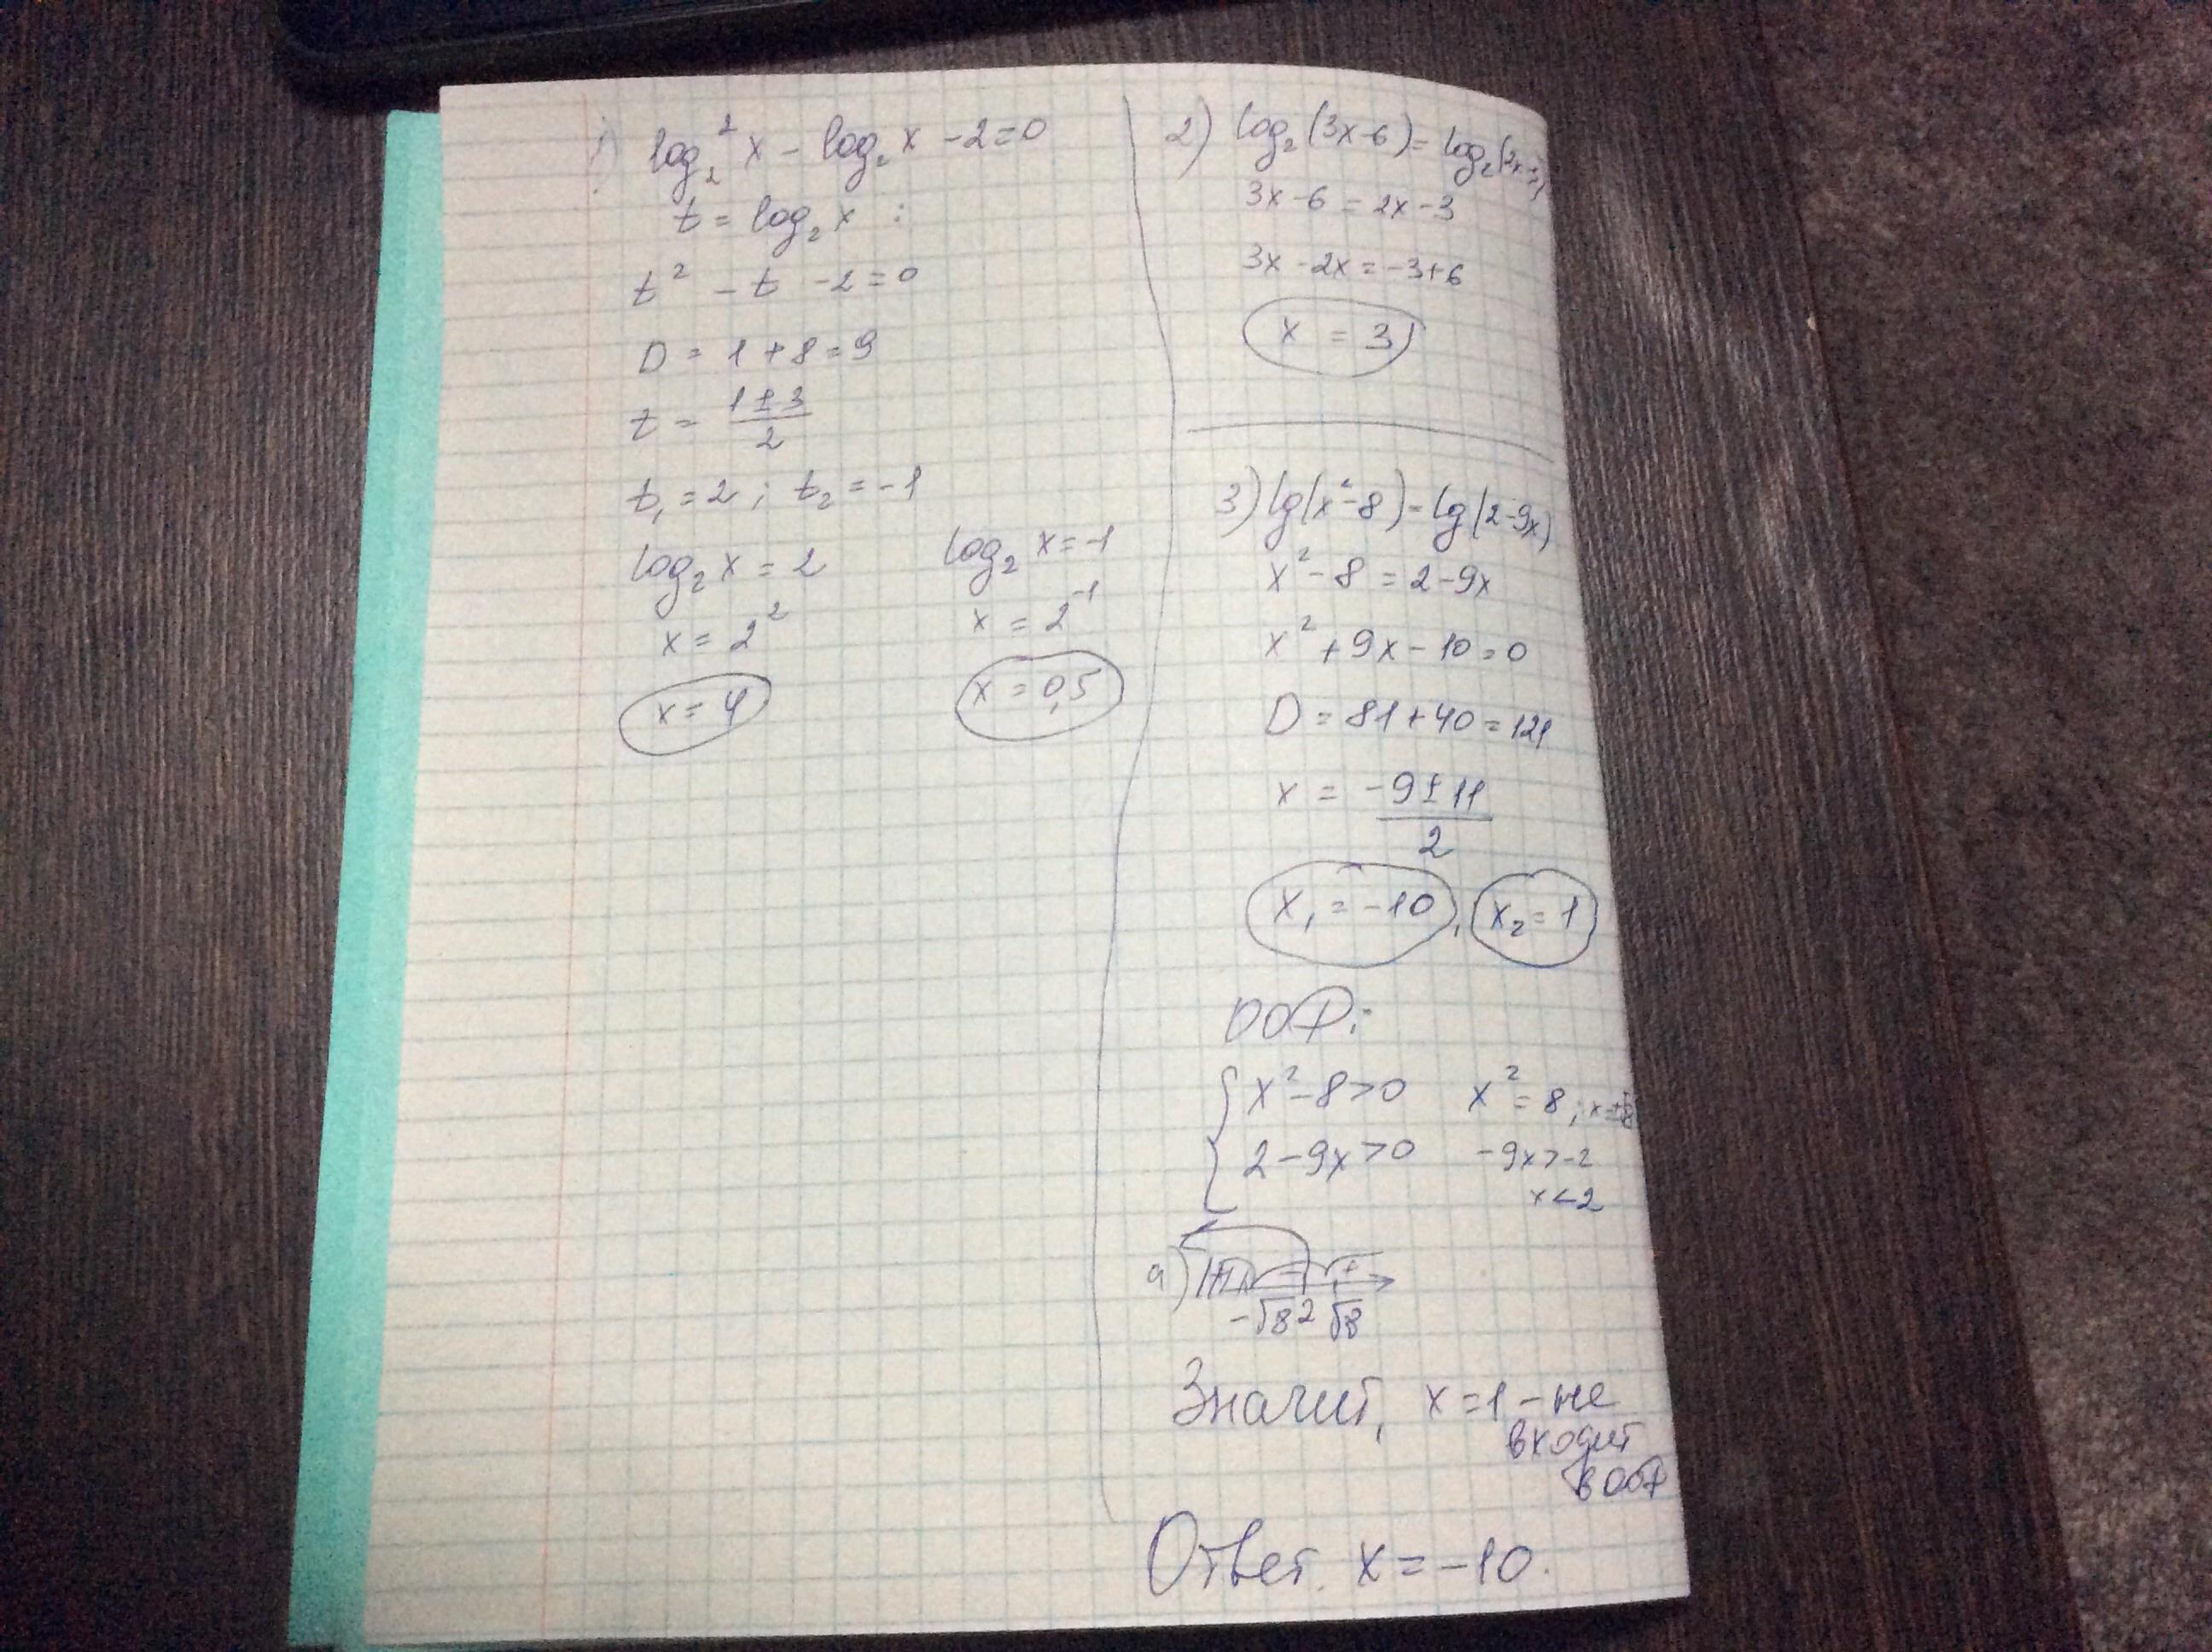 1) log₂²x - log₂x - 2 = 0
t = log₂x :
t² - t - 2 = 0
D = 1 + 8 = 9
t = (1 ± 3)/2
t₁ = 2 ; t₂ = -1
log₂x = 2 log₂x = -1
x = 2² x = 2⁻¹
x = 4 x = 0,5
2) log₂(3x-6) = log₂(2x-3)
3x - 6 = 2x - 3
3x - 2x = -3 + 6
x = 3
3) lg(x²-8) = lg(2-9x)
x² - 8 = 2 - 9x
x² + 9x - 10 = 0
D = 81 + 40 = 121
x = (-9 ± 11)/2
x₁ = -10, x₂ = 1
ООФ:
x² - 8 > 0 x² = 8; x = ±√8
2 - 9x > 0 -9x > -2
x < 2
а) + - +
-√8 2 √8
Значит, x = 1 - не
входит
в ООФ
Ответ. x = -10.